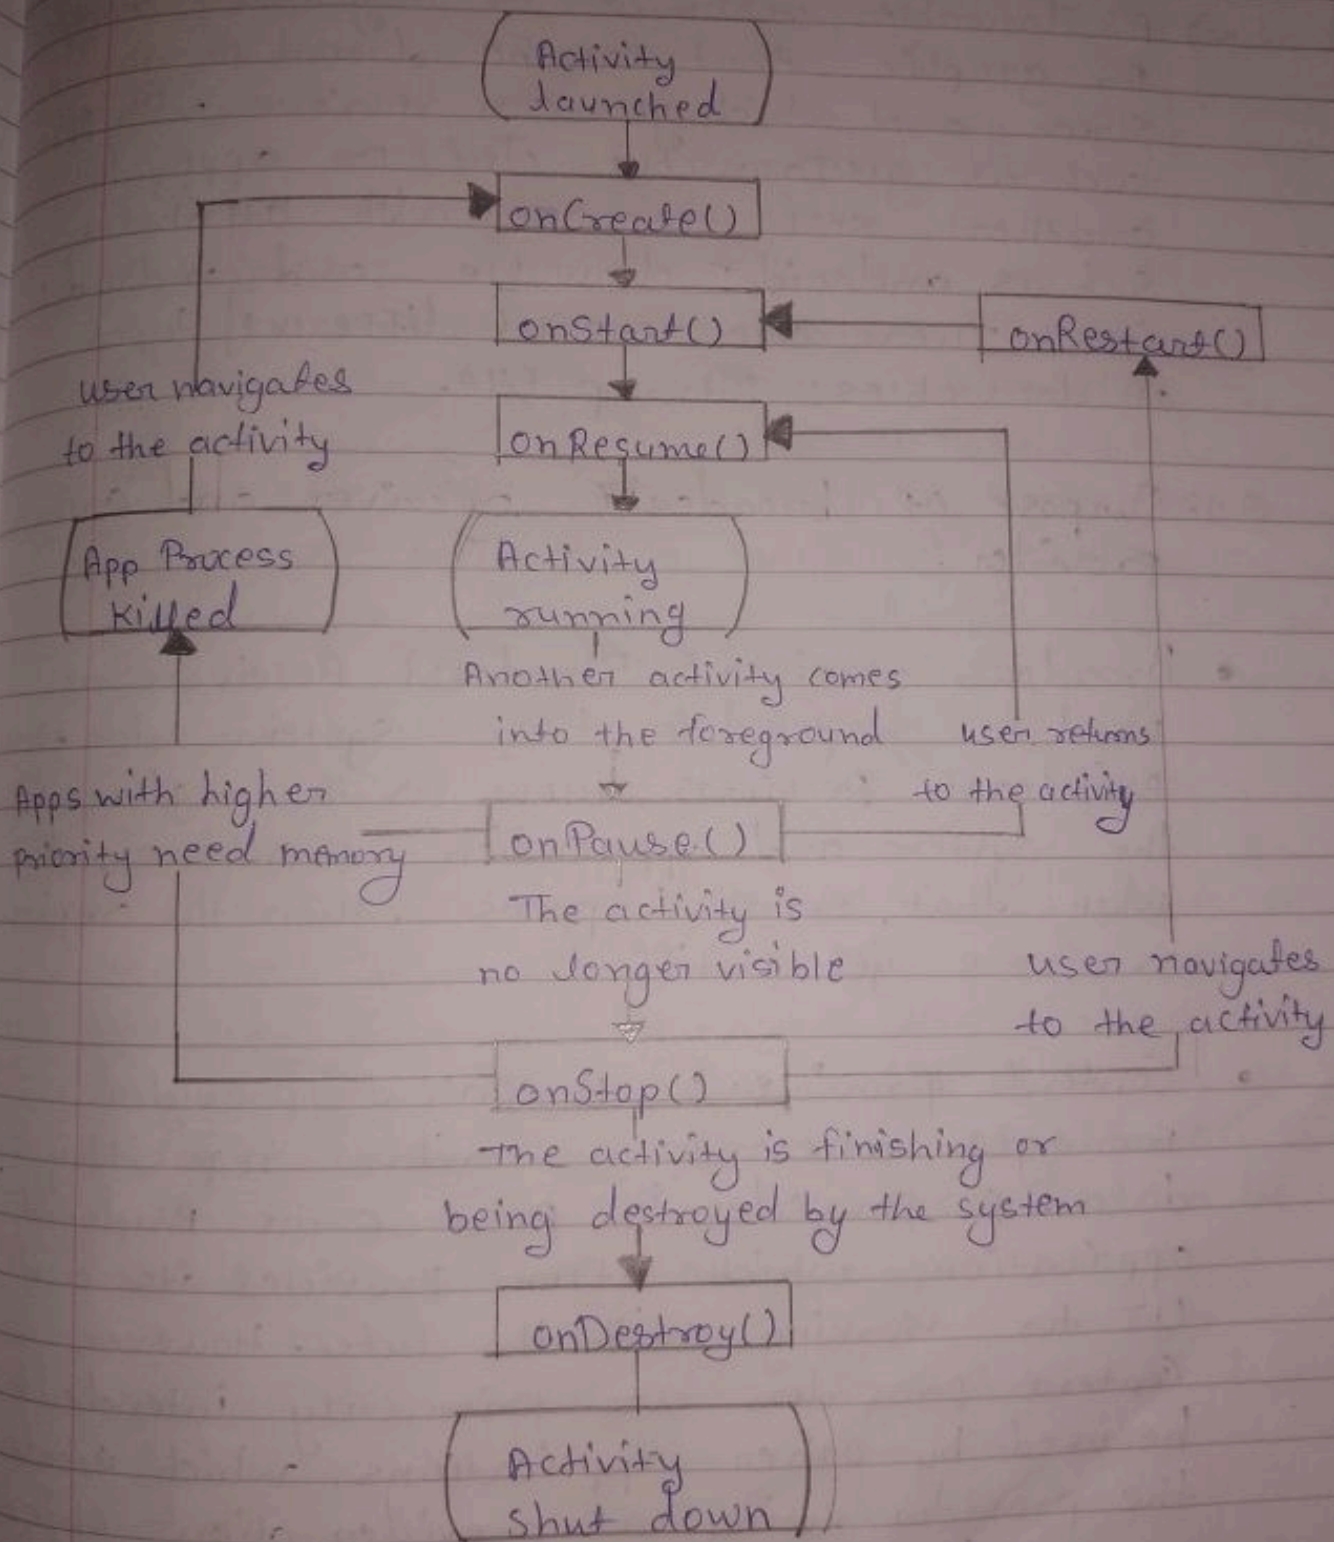 Activity
launched
onCreate()
onStart()
onRestart()
user navigates
to the activity
onResume()
App Process
Killed
Activity
running
Another activity comes
into the foreground
user returns
to the activity
Apps with higher
priority need memory
onPause()
The activity is
no longer visible
user navigates
to the activity
onStop()
The activity is finishing or
being destroyed by the system
onDestroy()
Activity
shut down